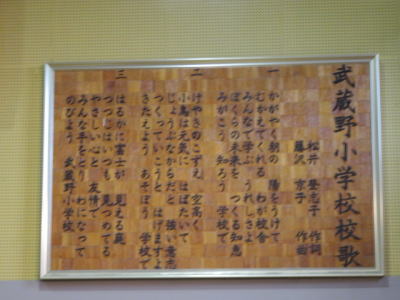 武蔵野小学校校歌
松井 登志子 作詞
藤沢 京子 作曲
一
かがやく朝の 陽をうけて
むかえてくれる わが校舎
みんなで学ぶ うれしさよ
ぼくらの未来を つくる知恵
みがこう 知ろう 学校で
二
けやきのこずえ 空高く
小鳥は元気に はばたいて
じょうぶなからだと 強い意志
つくっていこうと はげますよ
きたえよう あそぼう 学校で
三
はるかに富士が 見える庭
つつじはいつも 見つめてる
やさしい心と 友情で
みんな手をとり わになって
のびよう 武蔵野小学校